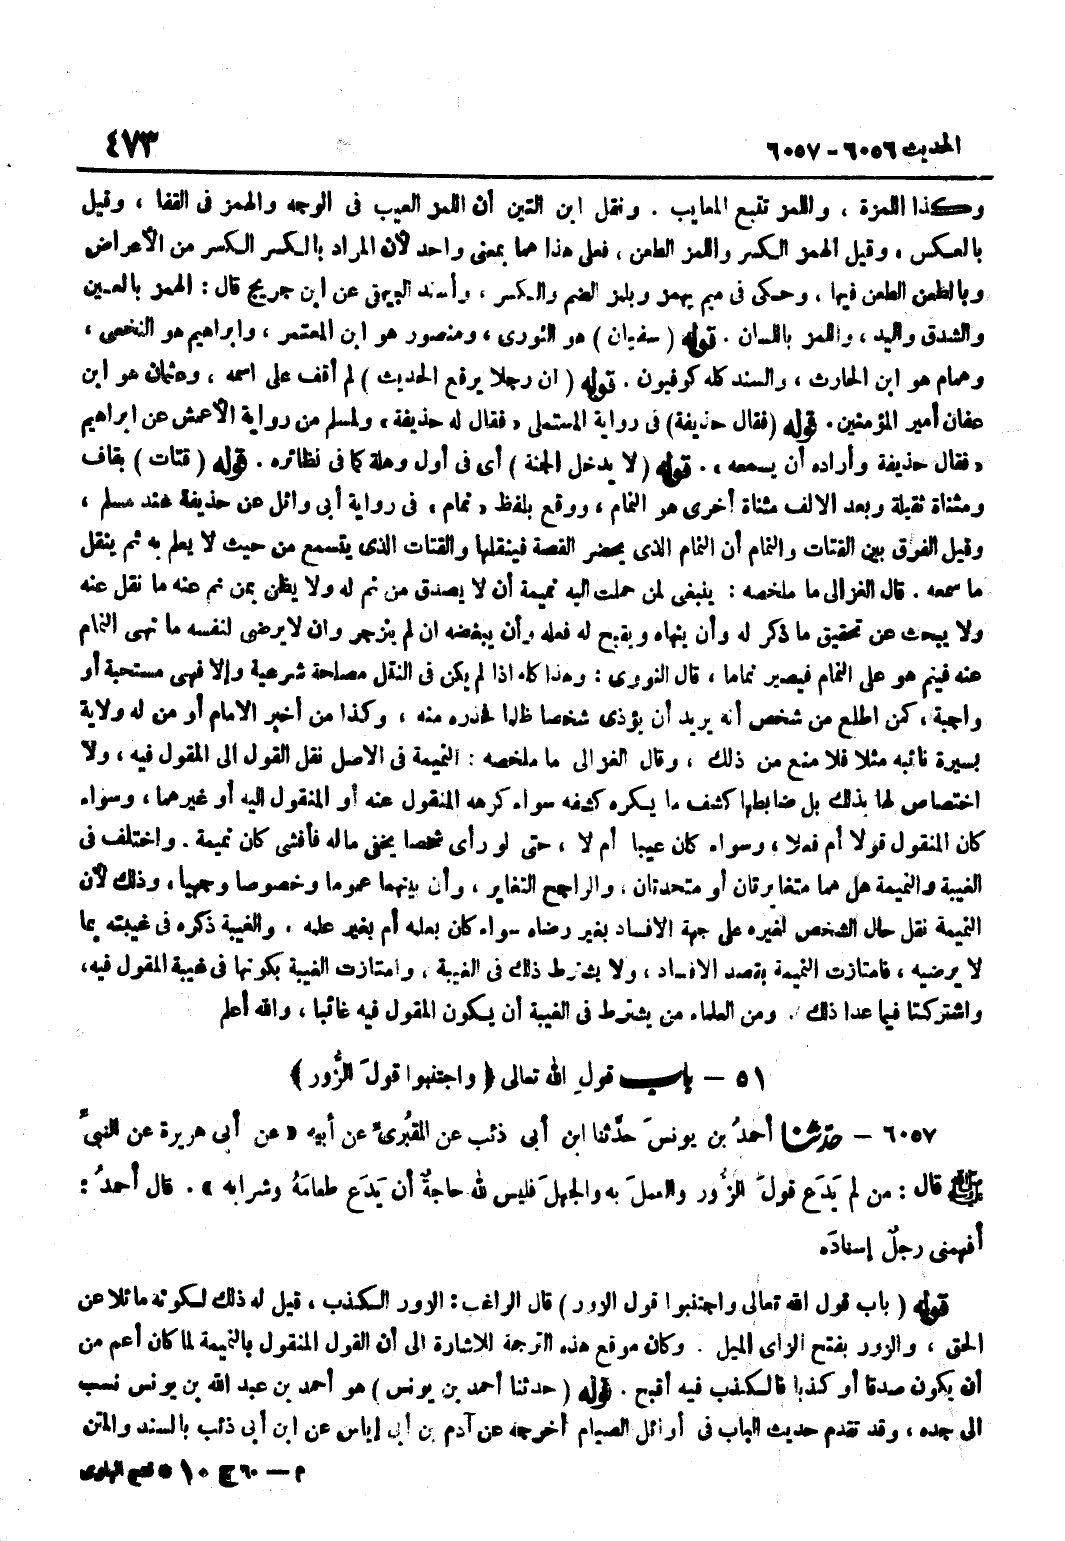 الحديث ٦٠٥٦ - ٦٠٥٧
٤٧٣
وكذا اللمزة ، واللمز تتبع المعايب . ونقل ابن التين أن اللمز العيب فى الوجه والهمز فى القفا ، وقيل
بالعكس ، وقيل الهمز الكسر واللمز الطعن ، فعلى هذا هما بمعنى واحد لأن المراد بالكسر الكسر من الأعراض
وبالطعن الطعن فيها ، وحكى فى ميم يهمز ويلمز الضم والكسر ، وأسند البيهقى عن ابن جريج قال : الهمز بالعين
والشدق واليد ، واللمز باللسان . قوله ( سفيان ) هو الثورى ، ومنصور هو ابن المعتمر ، وابراهيم هو النخعى ،
وهمام هو ابن الحارث ، والسند كله كوفيون . قوله ( ان رجلا يرفع الحديث ) لم أقف على اسمه ، وعثمان هو ابن
عفان أمير المؤمنين . قوله ( فقال حذيفة ) فى رواية المستملى « فقال له حذيفة » ولمسلم من رواية الأعمش عن ابراهيم
« فقال حذيفة وأراده أن يسمعه » . قوله ( لا يدخل الجنة ) أى فى أول وهلة كما فى نظائره . قوله ( قتات ) بقاف
ومثناة ثقيلة وبعد الالف مثناة أخرى هو النمام ، ووقع بلفظ « نمام » فى رواية أبى وائل عن حذيفة عند مسلم ،
وقيل الفرق بين القتات والنمام أن النمام الذى يحضر القصة فينقلها والقتات الذى يتسمع من حيث لا يعلم به ثم ينقل
ما سمعه . قال الغزالى ما ملخصه : ينبغى لمن حملت اليه نميمة أن لا يصدق من نم له ولا يظن بمن نم عنه ما نقل عنه
ولا يبحث عن تحقيق ما ذكر له وأن ينهاه ويقبح له فعله وأن يبغضه ان لم ينزجر وان لا يرضى لنفسه ما نهى النمام
عنه فينم هو على النمام فيصير نماما ، قال النووى : وهذا كله اذا لم يكن فى النقل مصلحة شرعية وإلا فهى مستحبة أو
واجبة ، كمن اطلع من شخص أنه يريد أن يؤذى شخصا ظلما فحذره منه ، وكذا من أخبر الامام أو من له ولاية
بسيرة نائبه مثلا فلا منع من ذلك ، وقال الغزالى ما ملخصه : النميمة فى الاصل نقل القول الى المقول فيه ، ولا
اختصاص لها بذلك بل ضابطها كشف ما يكره كشفه سواء كرهه المنقول عنه أو المنقول اليه أو غيرهما ، وسواء
كان المنقول قولا أم فعلا ، وسواء كان عيبا أم لا ، حتى لو رأى شخصا يخفى ماله فأفشى كان نميمة . واختلف فى
الغيبة والنميمة هل هما متغايرتان أو متحدتان ، والراجح التغاير ، وأن بينهما عموما وخصوصا وجهيا ، وذلك لأن
النميمة نقل حال الشخص لغيره على جهة الافساد بغير رضاه سواء كان بعلمه أم بغير علمه . والغيبة ذكره فى غيبته بما
لا يرضيه ، فامتازت النميمة بقصد الافساد ، ولا يشترط ذلك فى الغيبة ، وامتازت الغيبة بكونها فى غيبة المقول فيه ،
واشتركتا فيما عدا ذلك . ومن العلماء من يشترط فى الغيبة أن يكون المقول فيه غائبا ، والله أعلم
٥١ - باب قولِ الله تعالى ﴿ واجتنبوا قولَ الزُّور ﴾
٦٠٥٧ - حدثنا أحمدُ بن يونسَ حدَّثنا ابن أبى ذئب عن المقبُرىِّ عن أبيه « عن أبي هريرة عن النبيِّ
ﷺ قال : من لم يَدَع قولَ الزُّور والعملَ به والجهلَ فليس لله حاجةٌ أن يَدَع طعامَهُ وشرابه » . قال أحمدُ :
أفهمنى رجلٌ إسنادَه
قوله ( باب قول الله تعالى واجتنبوا قول الزور ) قال الراغب : الزور الكذب ، قيل له ذلك لكونه مائلا عن
الحق ، والزور بفتح الزاى الميل . وكان موقع هذه الترجمة للاشارة الى أن القول المنقول بالنميمة لما كان أعم من
أن يكون صدقا أو كذبا فالكذب فيه أقبح . قوله ( حدثنا أحمد بن يونس ) هو أحمد بن عبد الله بن يونس نسب
الى جده ، وقد تقدم حديث الباب فى أوائل الصيام أخرجه عن آدم بن أبى إياس عن ابن أبى ذئب بالسند والمتن
م - ٦٠ ج ١٠ * فتح البارى